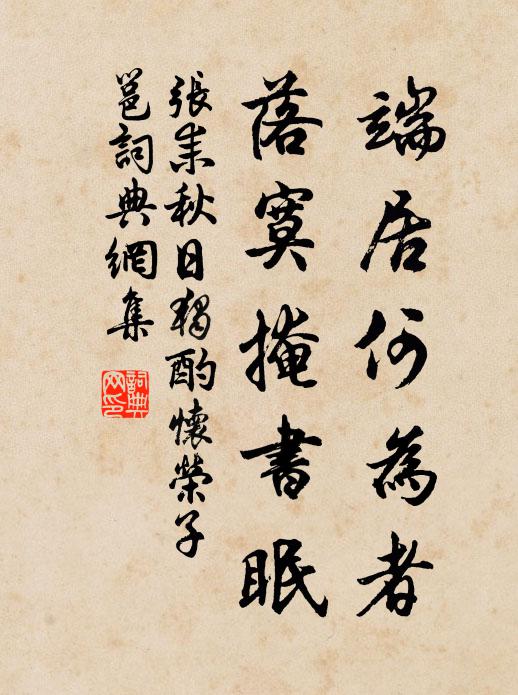 端居何為者
落寞掩書眠
張耒秋日獨酌懷榮子
邕詞典網集
詞典網印